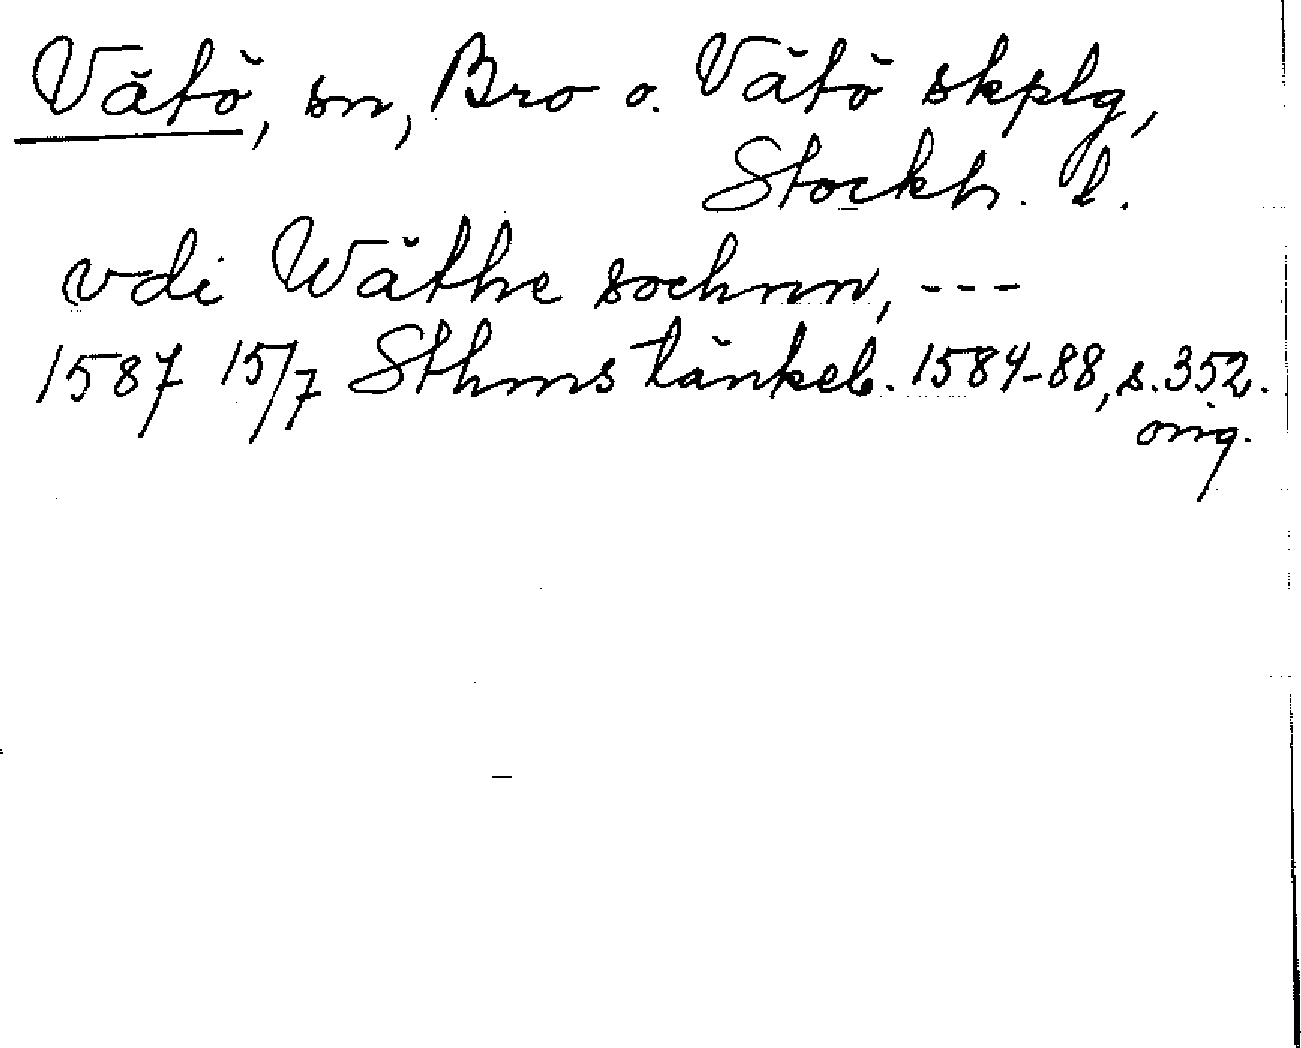 Vätö, sn, Bro o. Vätö skplg,
Stockh. l.
vdi Wäthe sochnn, ---
1587 15/7 Sthms tänkeb. 1584-88, s. 352.
orig.